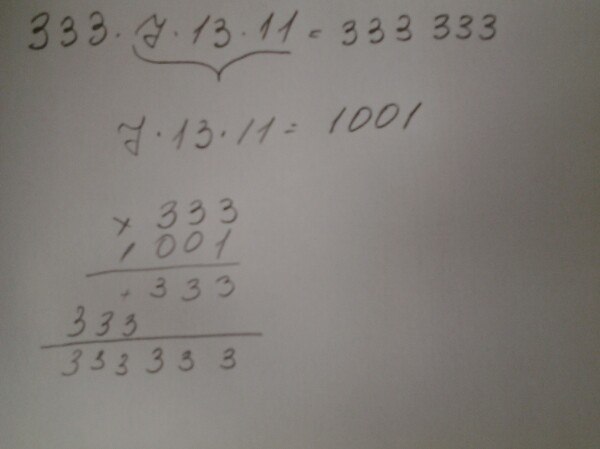 333 · 7 · 13 · 11 = 333 333
7 · 13 · 11 = 1001
× 333
1001
+ 333
333
333 333